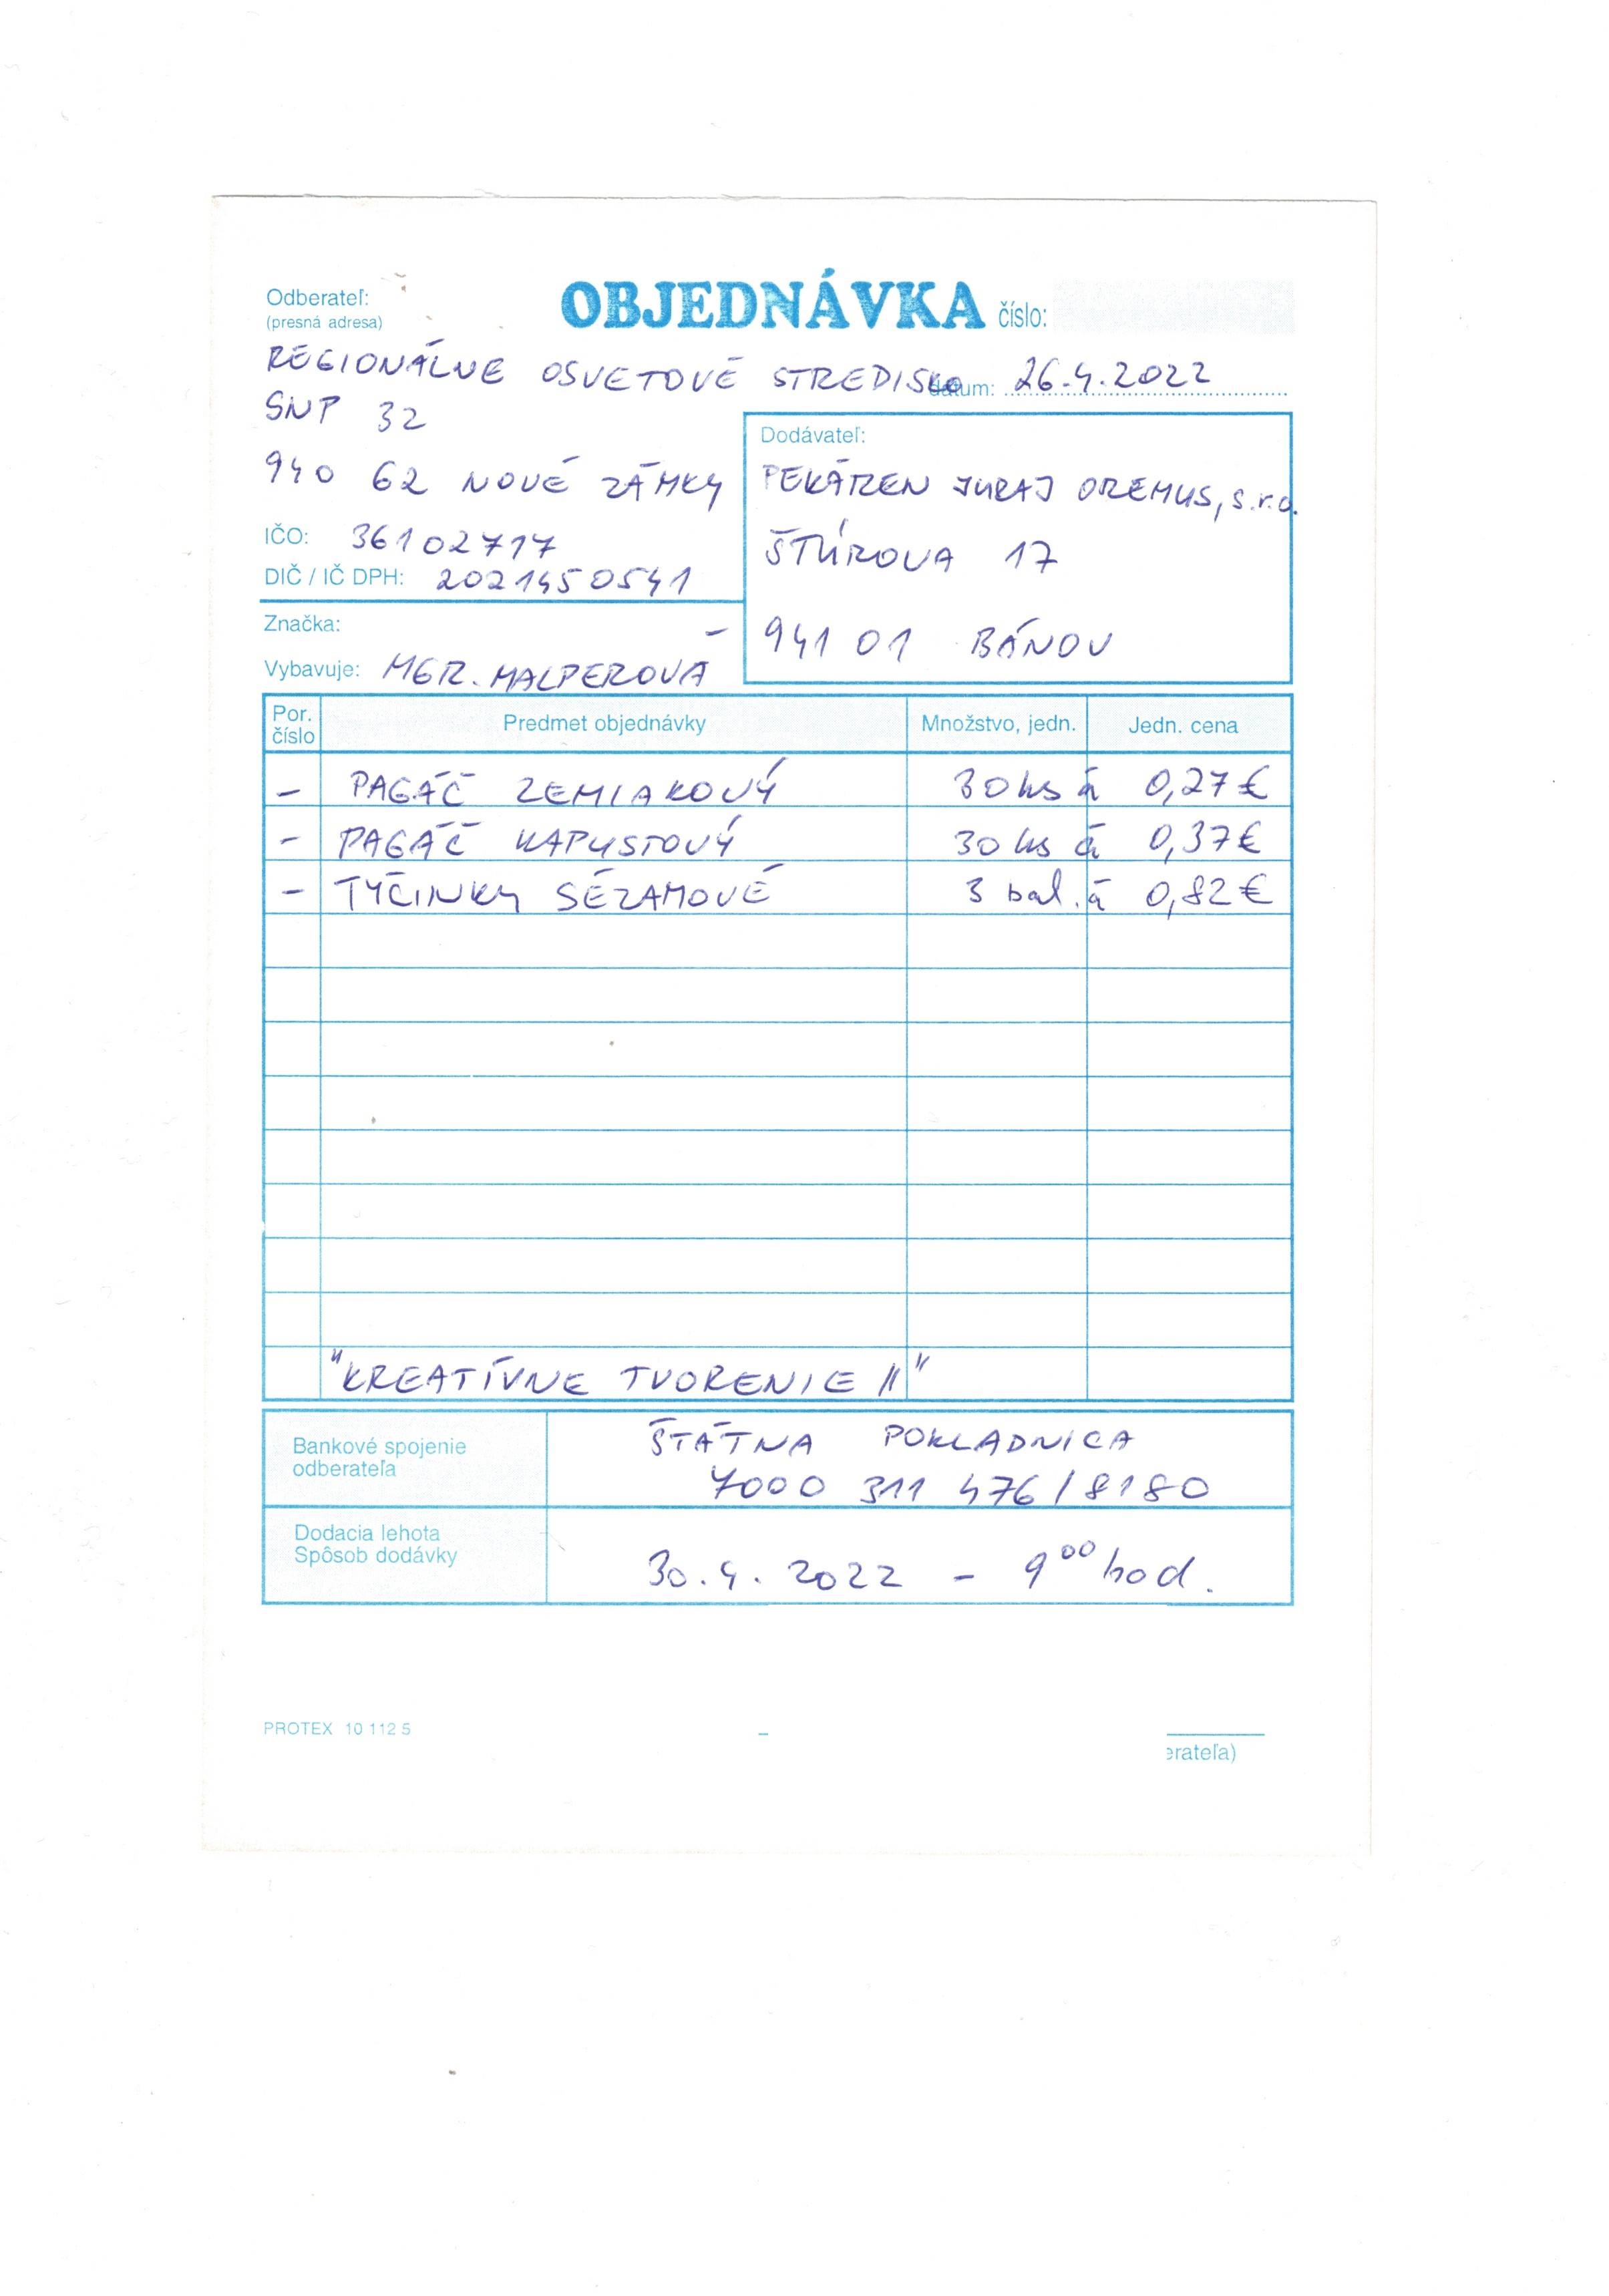 Odberateľ:
(presná adresa)
OBJEDNÁVKA číslo:
REGIONÁLNE OSVETOVÉ STREDISKO
dátum: 26.4.2022
SNP 32
940 62 NOVÉ ZÁMKY
IČO: 36102717
DIČ / IČ DPH: 2021450541
Značka: –
Vybavuje: MGR. MALPEROVÁ
Dodávateľ:
PEKÁREN JURAJ OREMUS, s.r.o.
ŠTÚROVA 17
941 01 BÁNOV
Por. číslo Predmet objednávky Množstvo, jedn. Jedn. cena
– PAGÁČ ZEMIAKOVÝ 30 ks á 0,27 €
– PAGÁČ KAPUSTOVÝ 30 ks á 0,37 €
– TYČINKY SÉZAMOVÉ 3 bal. á 0,82 €
"KREATÍVNE TVORENIE II"
Bankové spojenie
odberateľa
ŠTÁTNA POKLADNICA
7000 311 476/8180
Dodacia lehota
Spôsob dodávky
30.4.2022 – 9⁰⁰ hod.
PROTEX 10 112 5
erateľa)